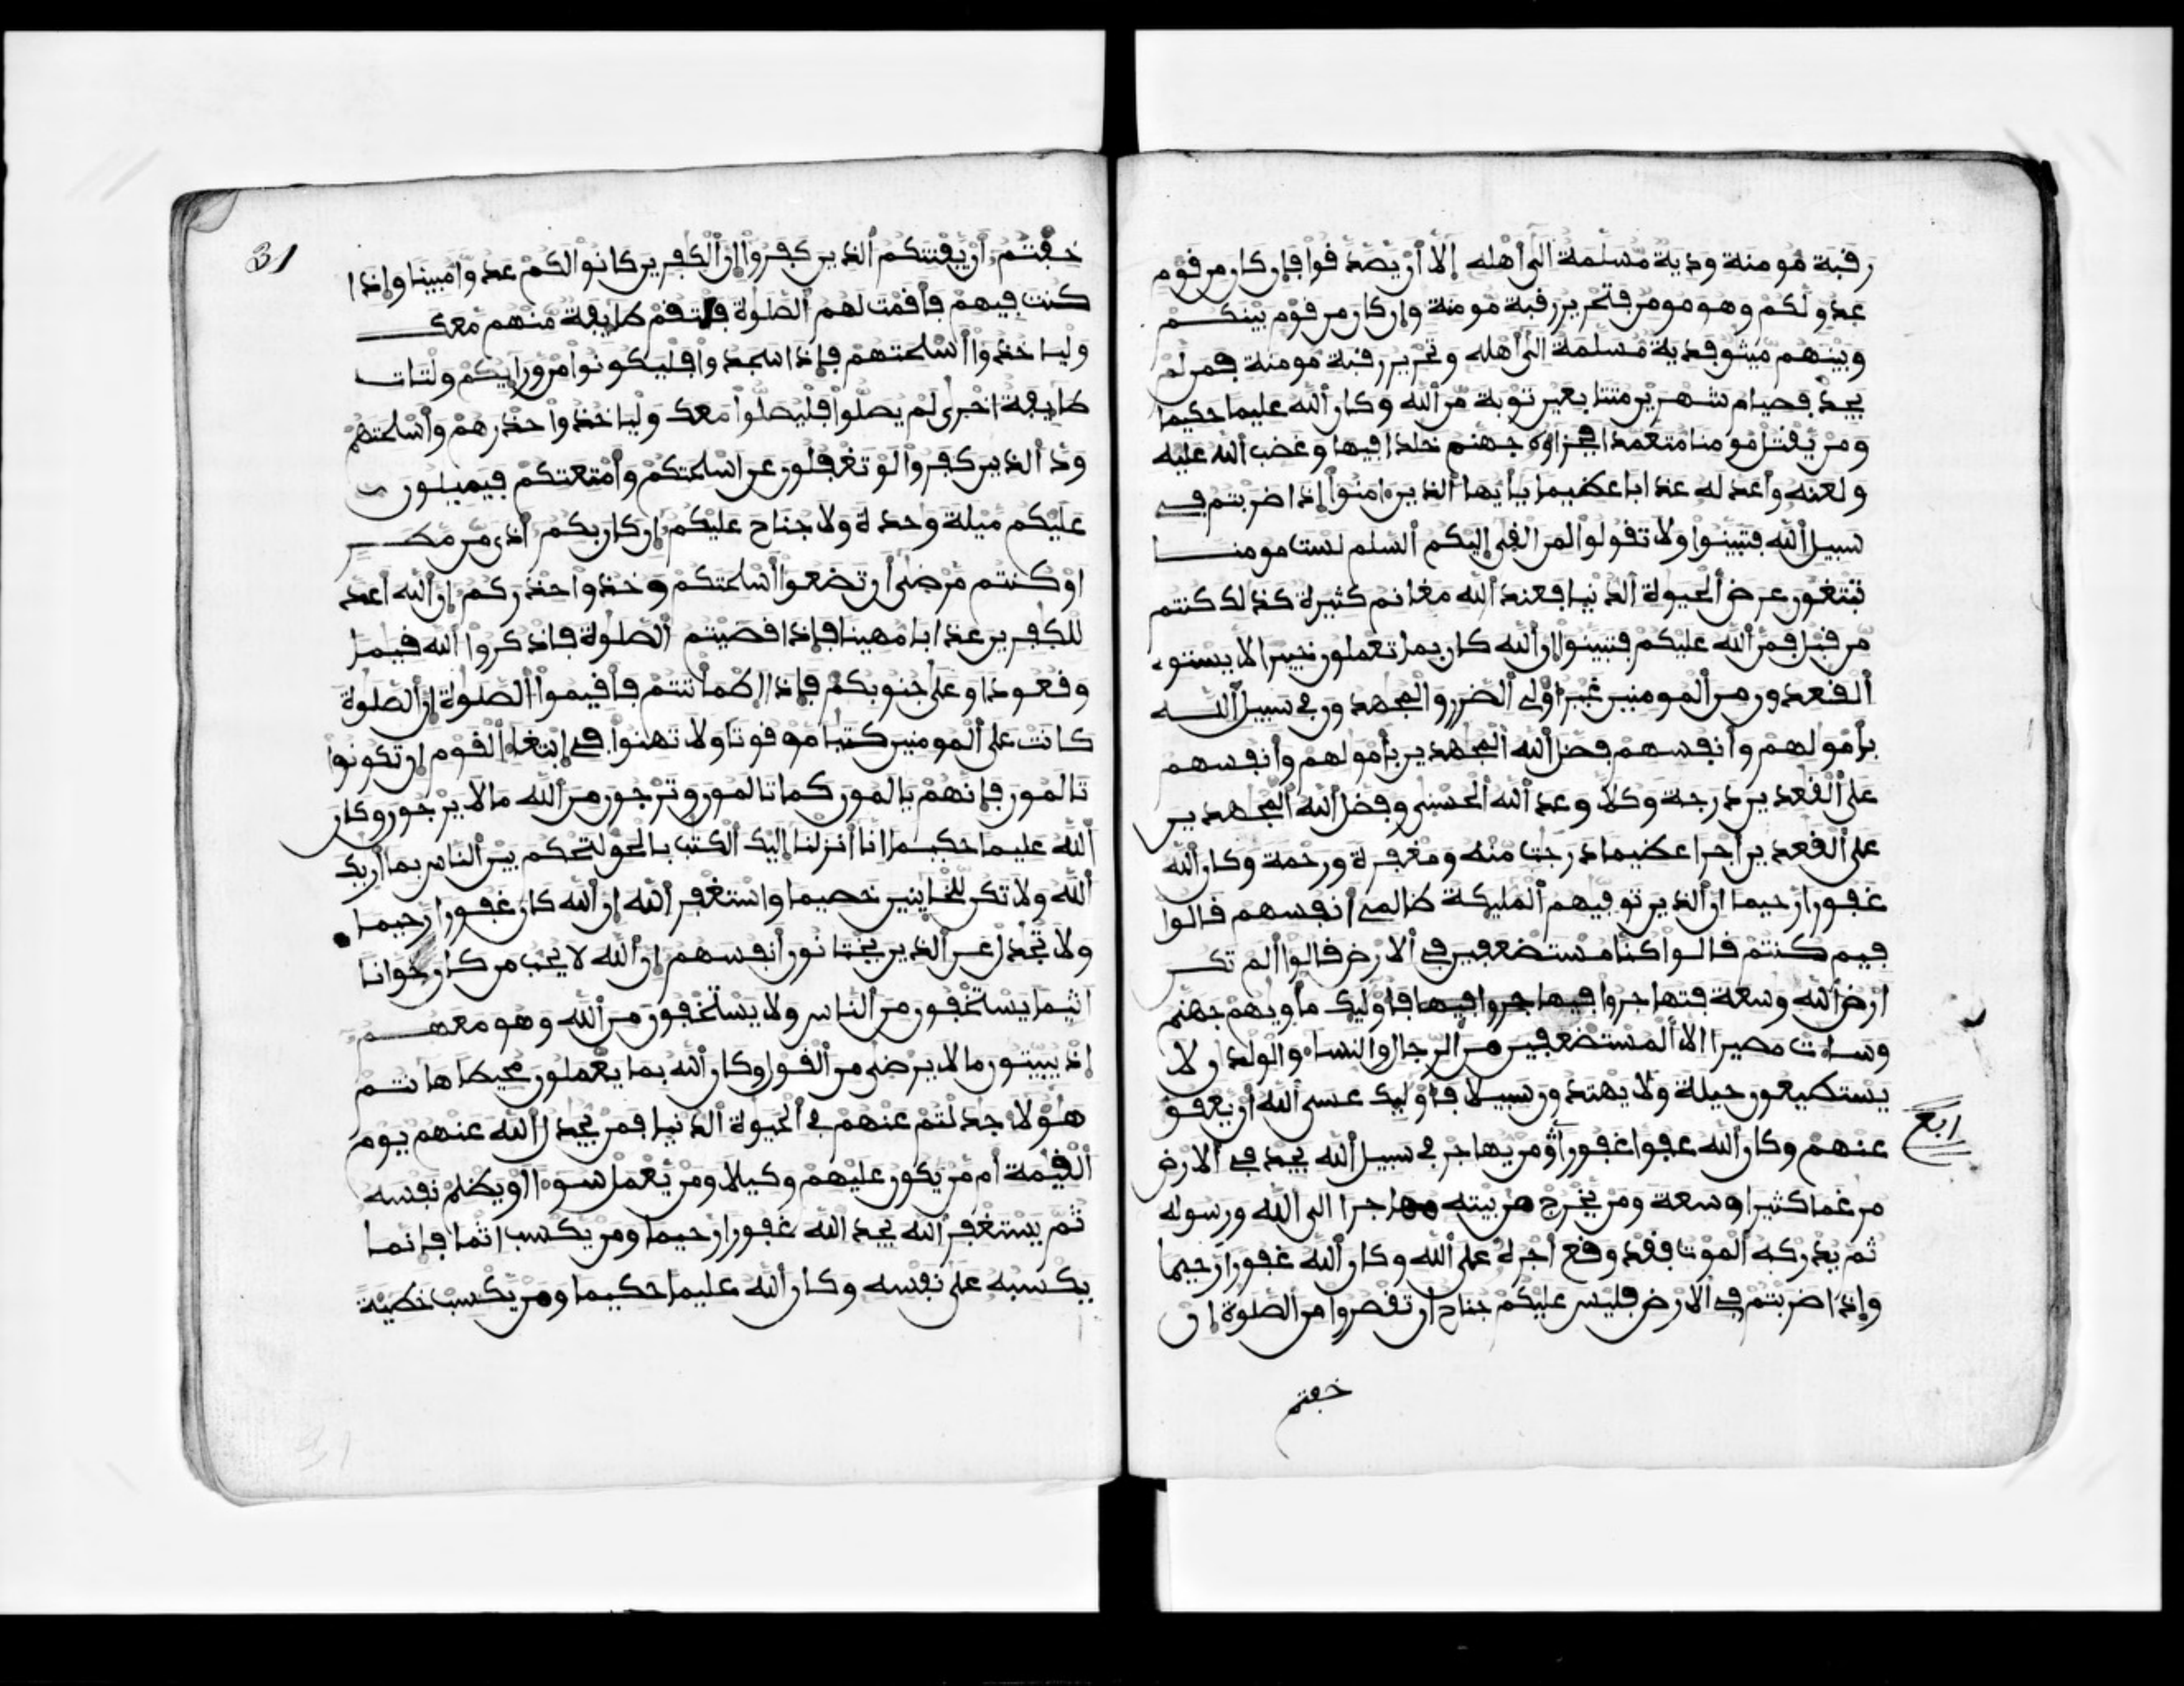 رقبة مومنة ودية مسلمة الى أهله إلا أن يصدقوا فإن كان من قوم
عدو لكم وهو مومن فتحرير رقبة مومنة وإن كان من قوم بينكم
وبينهم ميثق فدية مسلمة الى أهله وتحرير رقبة مومنة فمن لم
يجد فصيام شهرين متتابعين توبة من الله وكان الله عليما حكيما
ومن يقتل مومنا متعمدا فجزاؤه جهنم خلدا فيها وغضب الله عليه
ولعنه وأعد له عذابا عظيما يأيها الذين ءامنوا إذا ضربتم في
سبيل الله فتبينوا ولا تقولوا لمن القى إليكم السلم لست مومنا
تبتغون عرض الحيوة الدنيا فعند الله مغانم كثيرة كذلك كنتم
من قبل فمن الله عليكم فتبينوا إن الله كان بما تعملون خبيرا لا يستوے
القعدون من المومنين غير أولى الضرر والمجهدون في سبيل الله
بأمولهم وأنفسهم فضل الله المجهدين بأمولهم وأنفسهم
على القعدين درجة وكلا وعد الله الحسنى وفضل الله المجهدين
على القعدين أجرا عظيما درجت منه ومغفرة ورحمة وكان الله
غفورا رحيما ان الذين توفيهم المليكة ظالمى أنفسهم قالوا
فيم كنتم قالوا كنا مستضعفين في الارض قالوا ألم تكن
ارض الله وسعة فتهاجروا فيها جروا فيها فأوليك مأويهم جهنم
وساءت مصيرا الا المستضعفين من الرجال والنساء والولدان لا
يستطيعون حيلة ولا يهتدون سبيلا فأوليك عسى الله أن يعفو
عنهم وكان الله عفوا غفورا ومن يهاجر في سبيل الله يجد في الارض
ربع
مرغما كثيرا وسعة ومن يخرج من بيته مهاجرا الى الله ورسوله
ثم يدركه الموت فقد وقع أجره على الله وكان الله غفورا رحيما
وإذا ضربتم في الارض فليس عليكم جناح ان تقصروا من الصلوة ان
خفتم
31
خفتم أن يفتنكم الذين كفروا إن الكفرين كانوا لكم عدوا مبينا وإذا
كنت فيهم فأقمت لهم الصلوة فلتقم طايفة منهم معك
وليأخذوا أسلحتهم فإذا سجدوا فليكونوا من ورايكم ولتات
طايفة اخرى لم يصلوا فليصلوا معك وليأخذوا حذرهم وأسلحتهم
ود الذين كفروا لو تغفلون عن اسلحتكم وأمتعتكم فيميلون
عليكم ميلة وحدة ولا جناح عليكم إن كان بكم أذى من مطر
او كنتم مرضى أن تضعوا أسلحتكم وخذوا حذركم إن الله أعد
للكفرين عذابا مهينا فإذا قضيتم الصلوة فاذكروا الله قيما
وقعودا وعلى جنوبكم فإذا اطمأننتم فأقيموا الصلوة إن الصلوة
كانت على المومنين كتبا موقوتا ولا تهنوا في ابتغاء القوم إن تكونوا
تالمون فإنهم يالمون كما تالمون وترجون من الله ما لا يرجون وكان
الله عليما حكيما إنا أنزلنا إليك الكتب بالحق لتحكم بين الناس بما أريك
الله ولا تكن للخاينين خصيما واستغفر الله إن الله كان غفورا رحيما
ولا تجدل عن الذين يختانون أنفسهم إن الله لا يحب من كان خوانا
اثيما يستخفون من الناس ولا يستخفون من الله وهو معهم
إذ يبيتون ما لا يرضى من القول وكان الله بما يعملون محيطا هانتم
هؤلاء جدلتم عنهم في الحيوة الدنيا فمن يجدل الله عنهم يوم
القيمة أم من يكون عليهم وكيلا ومن يعمل سوءا او يظلم نفسه
ثم يستغفر الله يجد الله غفورا رحيما ومن يكسب اثما فإنما
يكسبه على نفسه وكان الله عليما حكيما ومن يكسب خطية